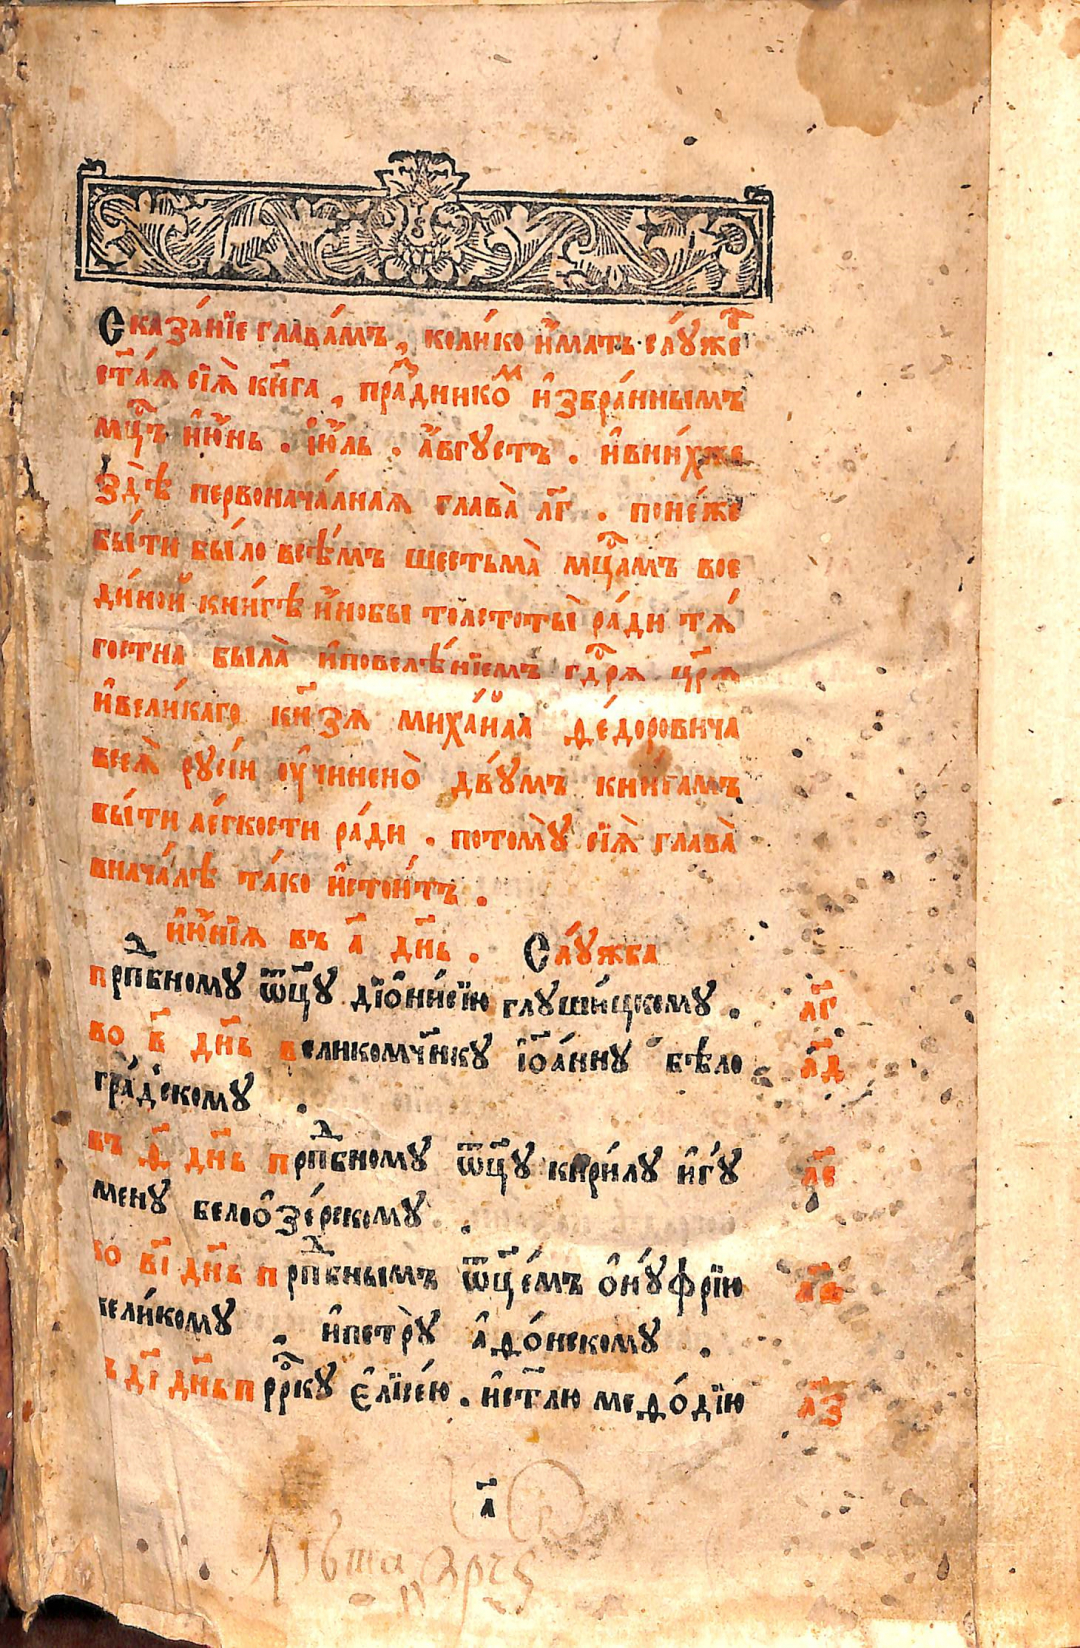 Сказа́нїе глава́мъ, коли́ко и҆́мать слу́же
ст҃а́ѧ сїѧ̀ кни́га, пра́ⷥнико́ⷨ и҆збра́ннымъ
мцⷭ҇ъ и҆ю҆́нь. і҆ю҆́ль. а҆́вгустъ. и҆вни́хже
здѣ̀ первонача́лнаѧ глава̀ л҃г. поне́же
бы́ти бы́ло всѣ́мъ шестьма̀ мцⷭ҇амъ вое
ди́ной кни́гѣ и҆́нобы толстоты̀ ра́ди тѧ́
гостна была̀ и҆повелѣ́нїемъ гдⷭ҇рѧ цр҃ѧ
и҆вели́каго кн҃зѧ миха́и҆ла ѳе́доровича
всеѧ̀ русі́и ᲂу҆чинено̀ дву́мъ кни́гамъ
бы́ти ле́гкости ра́ди. потому̀ сїѧ̀ глава̀
внача́лѣ та́ко и҆стои́тъ.
и҆ю҆́нїѧ въ а҃ дн҃ь. Слу́жба
прпⷣбному ѿц҃у дїѻни́сїю глуши́цкому. л҃г
во в҃ дн҃ь великомч҃нку і҆ѡа́нну бѣло л҃д
гра́дскому.
въ ѳ҃ дн҃ь прпⷣбному ѿц҃у кири́лу и҆гу́ л҃е
мену белоѻзе́рскому.
во в҃і дн҃ь прпⷣбнымъ ѿц҃е́мъ ѻ҆ну́фрїю л҃ѕ
вели́кому. и҆петру̀ а҆ѳо́нскому.
въ д҃і дн҃ь прⷪ҇рку є҆лїсе́ю. и҆ст҃лю меѳо́дїю л҃з
а҃